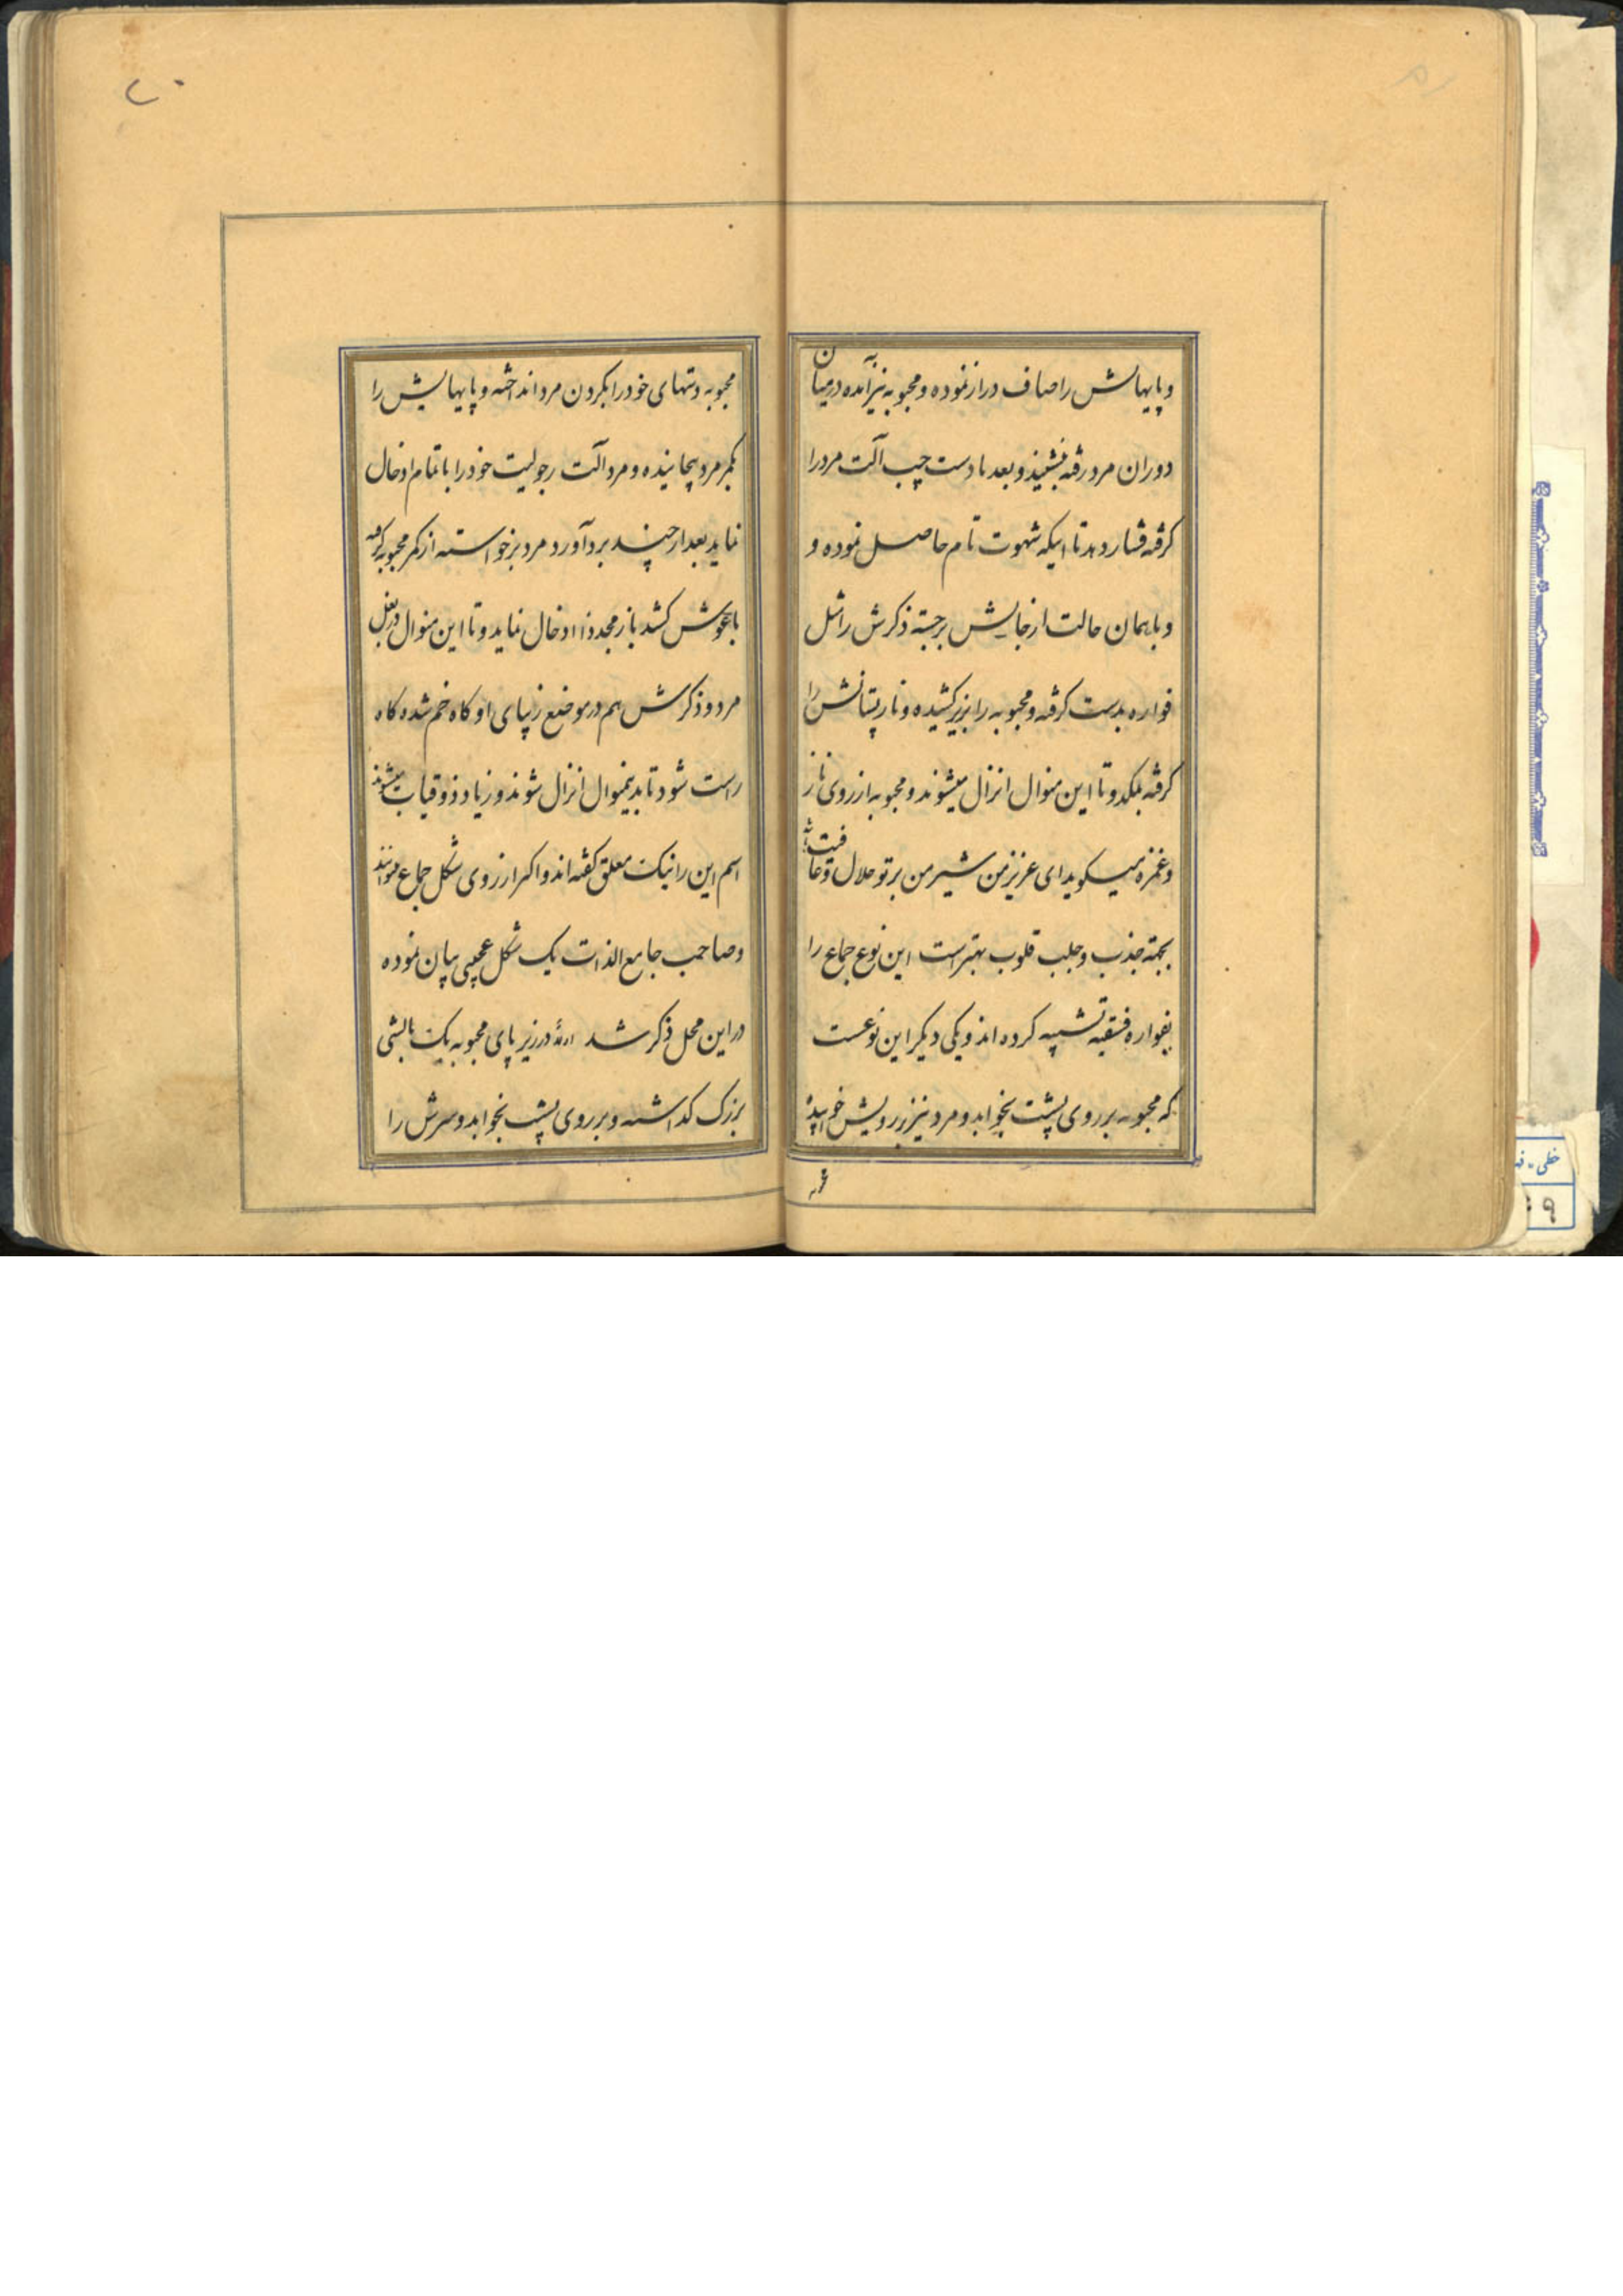 و پایهایش را صاف دراز نموده و محبوبه نیز آمده در میان
دوران مرد رفته بنشیند و بعد با دست چپ آلت مرد را
گرفته فشار دهد تا اینکه شهوت تام حاصل نموده و
و با همان حالت از جایش برجسته ذکرش را مثل
فواره بدست گرفته و محبوبه را بزیر کشیده و نار پستانش را
گرفته بمکد و تا این منوال انزال میشوند و محبوبه از روی ناز
و غمزه میگوید ای عزیز من شیر من بر تو حلال و عافیت باشد
بجهته جذب و جلب قلوب بهتر است این نوع جماع را
بفواره فسقیه تشبیه کرده اند و یکی دیگر این نوعست
که محبوبه بر روی پشت بخوابد و مرد نیز بر رویش خوابیده
محبوبه دستهای خود را بگردن مرد انداخته و پایهایش را
بکمر مرد پیچانیده و مرد آلت رجولیت خود را با تمام ادخال
نماید بعد از چند برد آورد مرد برخواسته از کمر محبوبه گرفته
باغوش کشد باز مجددا ادخال نماید و تا این منوال در بغل
مرد و ذکرش هم در موضع زیبای او گاه خم شده گاه
راست شود تا بدینموال انزال شوند و زیاد ذوقیاب میشوند
اسم این را نیک معلق گفته اند و اکر از روی شکل جماع
و صاحب جامع الذات یک شکل عجیبی بیان نموده
در این محل ذکر شد در زیر پای محبوبه یک بالشی
بزرک کذاشته و بر روی پشت بخوابد و سرش را
۲۰
خطی - فه
۹